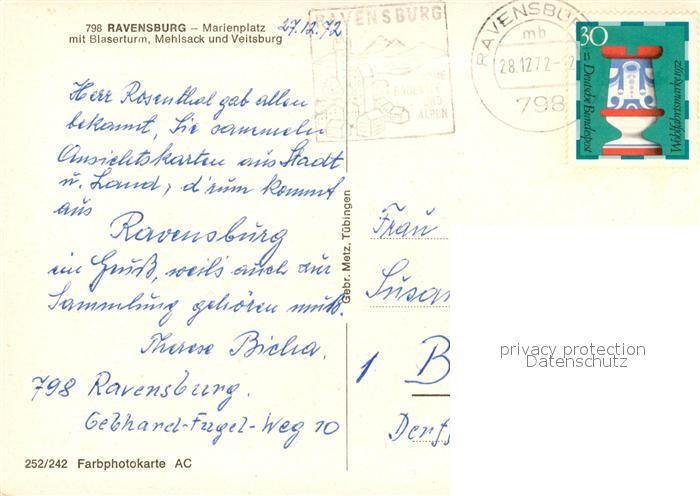 798 RAVENSBURG – Marienplatz
mit Blaserturm, Mehlsack und Veitsburg
27.12.72
RAVENSBURG
UND
ALPEN
RAVENSBURG
mb
28.12.72
798
30
Deutsche Bundespost
Wohlfahrtsmarke 1972
Herr Rosenthal gab allen
bekannt, Sie sammeln
Ansichtskarten aus Stadt
u. Land, d'rum kommt
aus
Ravensburg
ein Gruß, weil's auch zur
Sammlung gehören muß.
Therese Bicha.
798 Ravensburg.
Gebhard-Fugel-Weg 10
Gebr. Metz, Tübingen
Frau
Susan
1 B
privacy protection
Datenschutz
252/242 Farbphotokarte AC